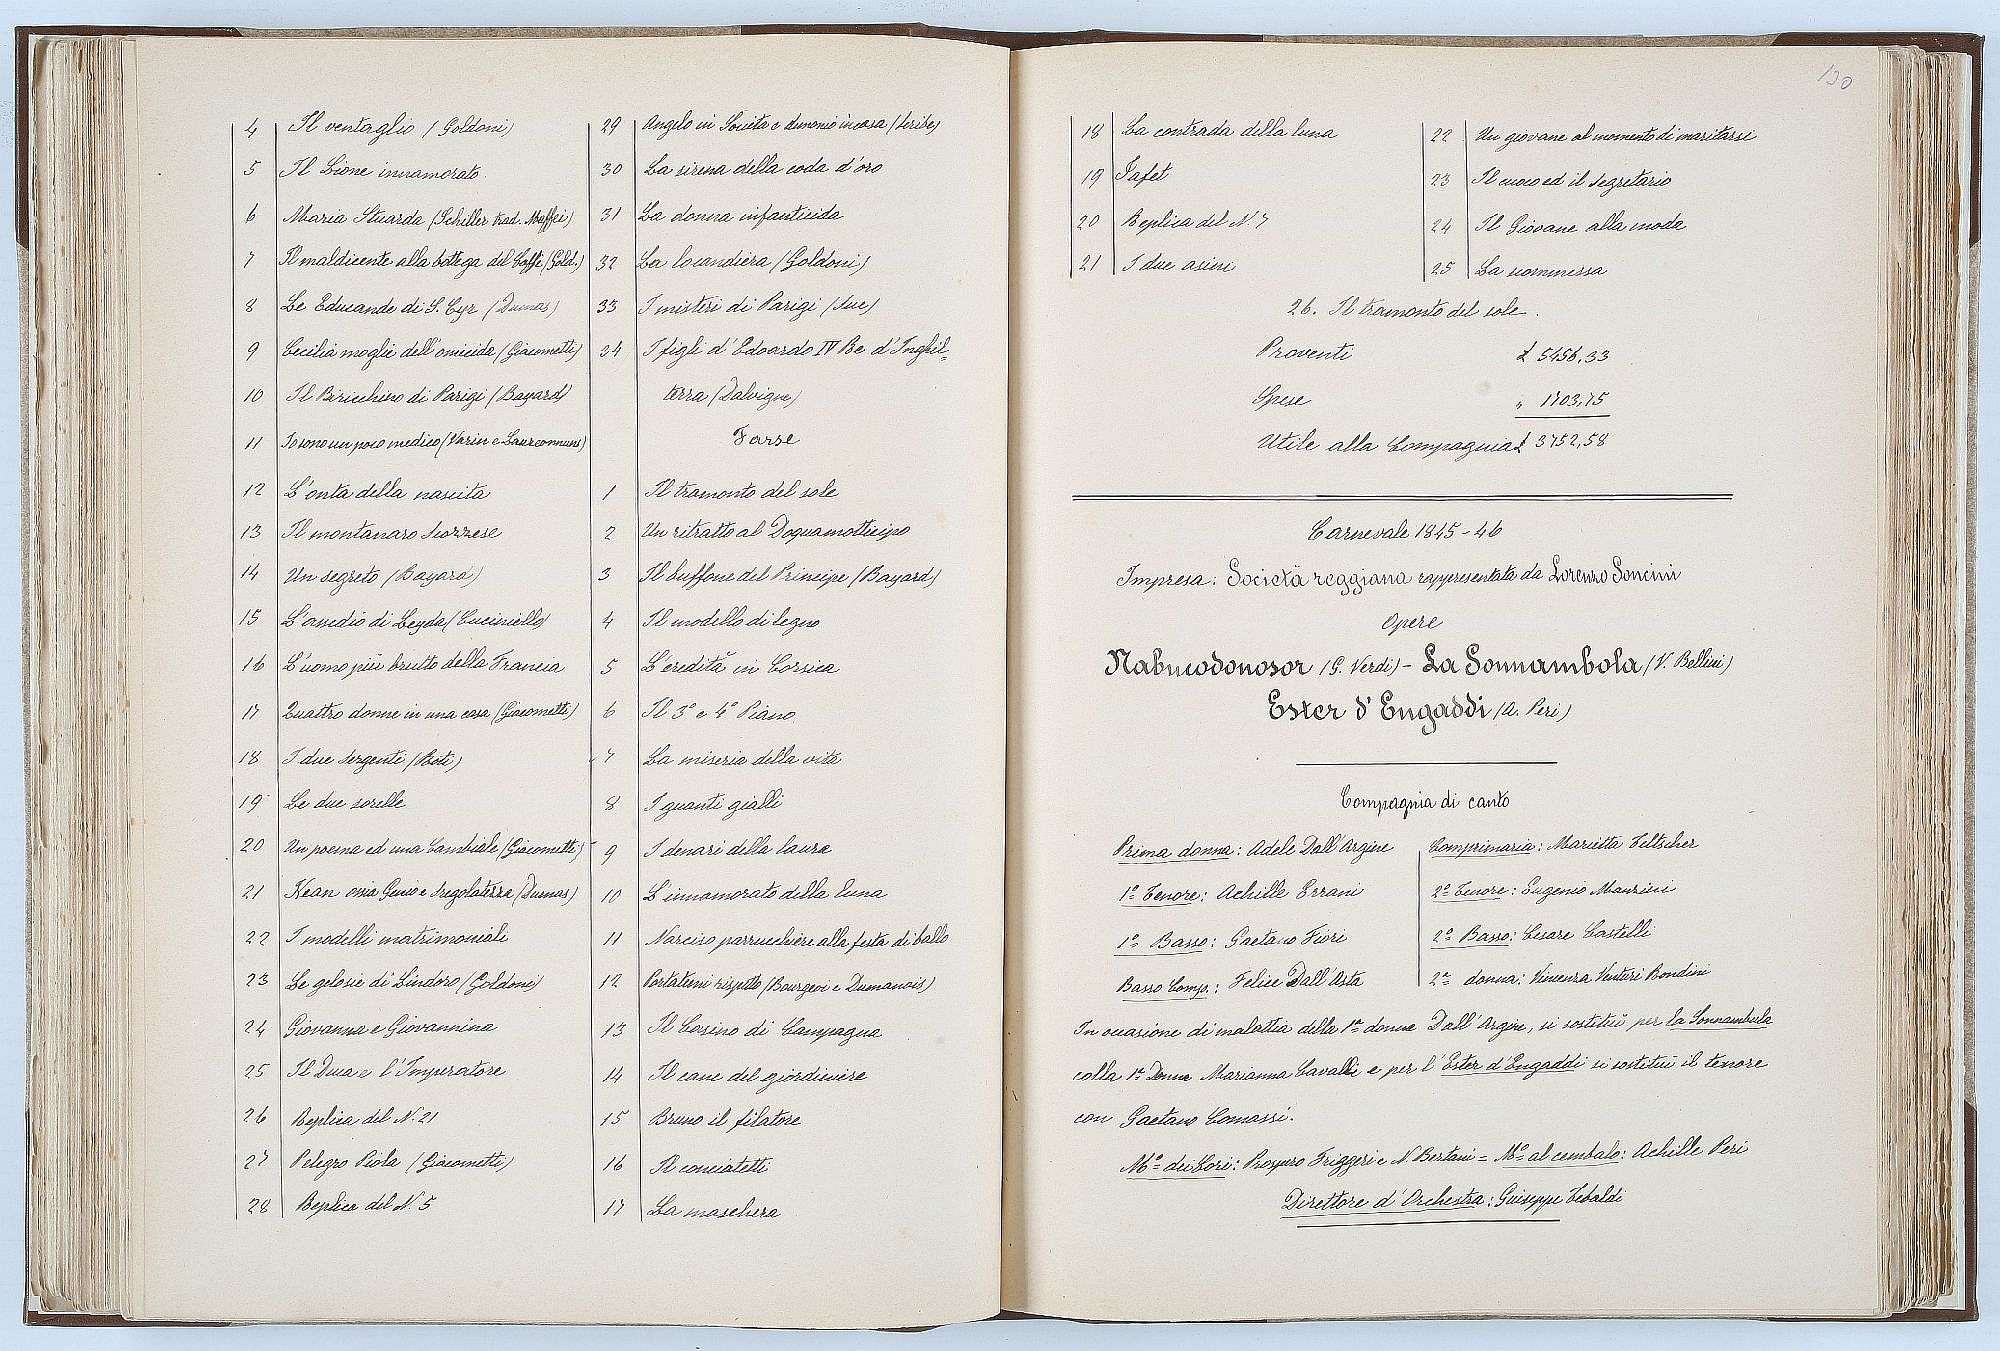 4 Il ventaglio (Goldoni)
5 Il Lione innamorato
6 Maria Stuarda (Schiller trad. Maffei)
7 Il maldicente alla bottega del Caffè (Gold.)
8 Le Educande di S. Cyr (Dumas)
9 Cecilia moglie dell'omicida (Giacometti)
10 Il Biricchino di Parigi (Bayard)
11 Io sono un poco medico (Varin e
12 L'onta della nascita
13 Il montanaro scozzese
14 Un segreto (Bayard)
15 L'assedio di Leyda (Cuciniello)
16 L'uomo più brutto della Francia
17 Quattro donne in una casa (Giacometti)
18 I due sergenti (Roti)
19 Le due sorelle
20 Un poema ed una Cambiale (Giacometti)
21 Kean ossia Genio e sregolatezza (Dumas)
22 I modelli matrimoniali
23 Le gelosie di Lindoro (Goldoni)
24 Giovanna e Giovannina
25 Il Duca e l'Imperatore
26 Replica del N. 21
27 Pelegro Piola (Giacometti)
28 Replica del N. 5
29 Angelo in Societa e demonio in casa (Scribe)
30 La sirena della coda d'oro
31 La donna infanticida
32 La locandiera (Goldoni)
33 I misteri di Parigi (Sue)
34 I figli d'Edoardo IV Re d'Inghil=
terra (Dalvigne)
Farse
1 Il tramonto del sole
2 Un ritratto al
3 Il buffone del Principe (Bayard)
4 Il modello di legno
5 L'eredità in Corsica
6 Il 3° e 4° Piano
7 La miseria della vita
8 I guanti gialli
9 I denari della laurea
10 L'innamorato della luna
11 Narciso parrucchiere alla festa di ballo
12 Portatemi rispetto (Bourgeoi e Dumanois)
13 Il Casino di Campagna
14 Il cane del giardiniere
15 Bruno il filatore
16
17 La maschera
130
18 La contrada della luna
19 Jafet
20 Replica del N. 7
21 I due asini
22 Un giovane al momento di maritarsi
23 Il cuoco ed il segretario
24 Il Giovane alla moda
25 La scommessa
26. Il tramonto del sole.
Proventi £ 5456,33
Spese „ 1703,75
Utile alla Compagnia £ 3752,58
Carnevale 1845-46
Impresa: Società reggiana rappresentata da Lorenzo Soncini
Opere
Nabucodonosor (G. Verdi) - La Sonnambola (V. Bellini)
Ester d'Engaddi (A. Peri)
Compagnia di canto
Prima donna: Adele Dall'Argine
1° Tenore: Achille Errani
1° Basso: Gaetano Fiori
Basso Comp.: Felice Dall'Asta
Comprimaria: Marietta Feltscher
2° Tenore: Eugenio Manzini
2° Basso: Cesare Castelli
2a donna: Vincenza Venturi Bondini
In occasione di malattia della 1a donna Dall'Argine, si sostituì per la Sonnambula
colla 1a Donna Marianna Cavalli e per l'Ester d'Engaddi si sostituì il tenore
con Gaetano Comassi.
M° dei Cori: Prospero Friggeri e N. Bertani = M° al cembalo: Achille Peri
Direttore d'Orchestra: Giuseppe Tebaldi